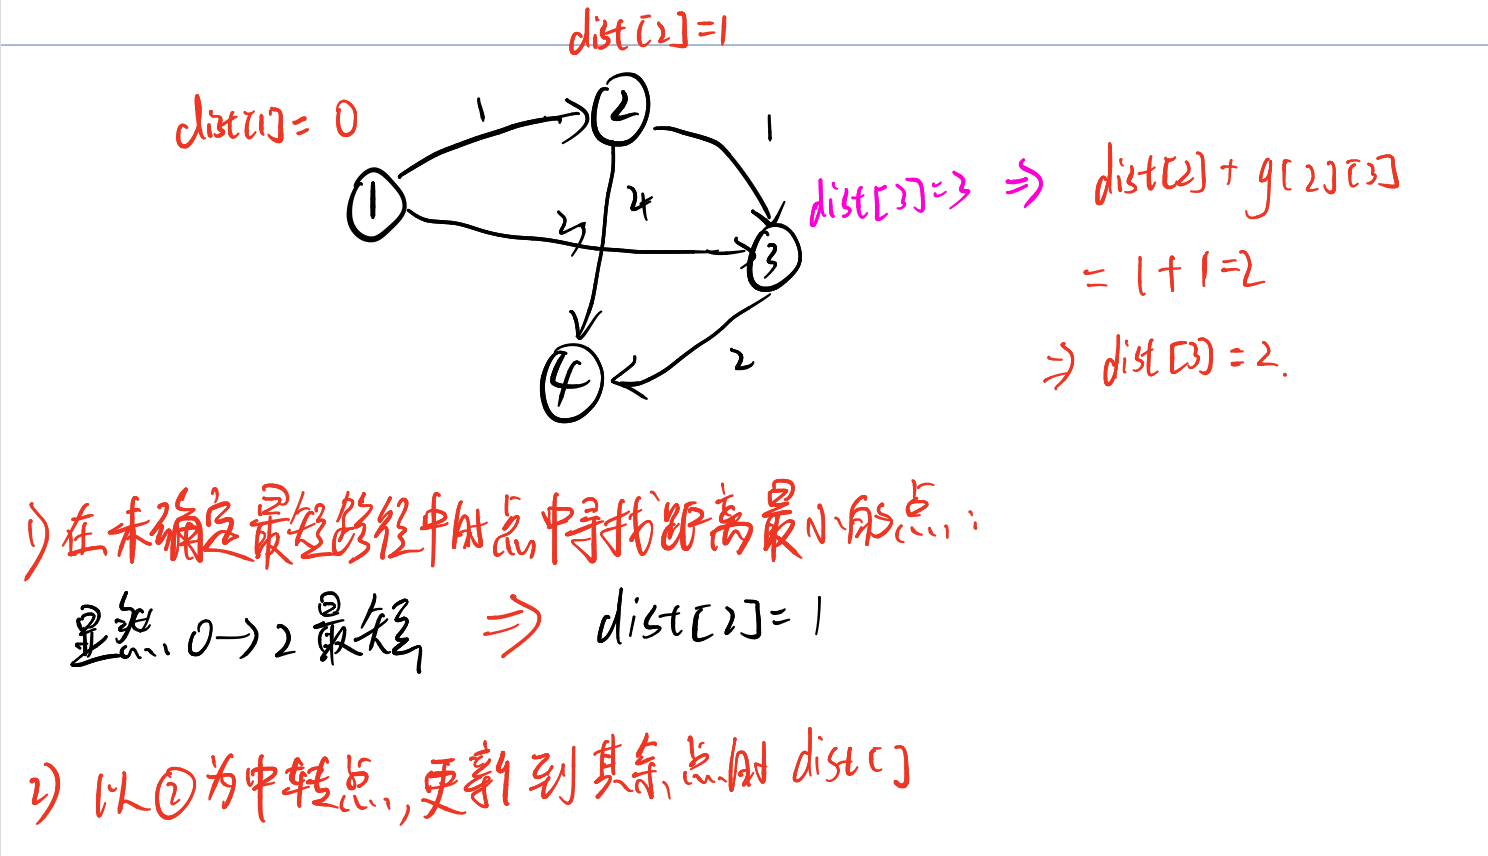 dist[2]=1
dist[1]=0
1
2
1
1
4
3
dist[3]=3 ⇒ dist[2]+g[2][3]
3
=1+1=2
4
2
⇒ dist[3]=2.
1) 在未确定最短路径中的点中寻找距离最小的点:
显然 0→2 最短 ⇒ dist[2]=1
2) 以②为中转点,更新到其余点的 dist[]